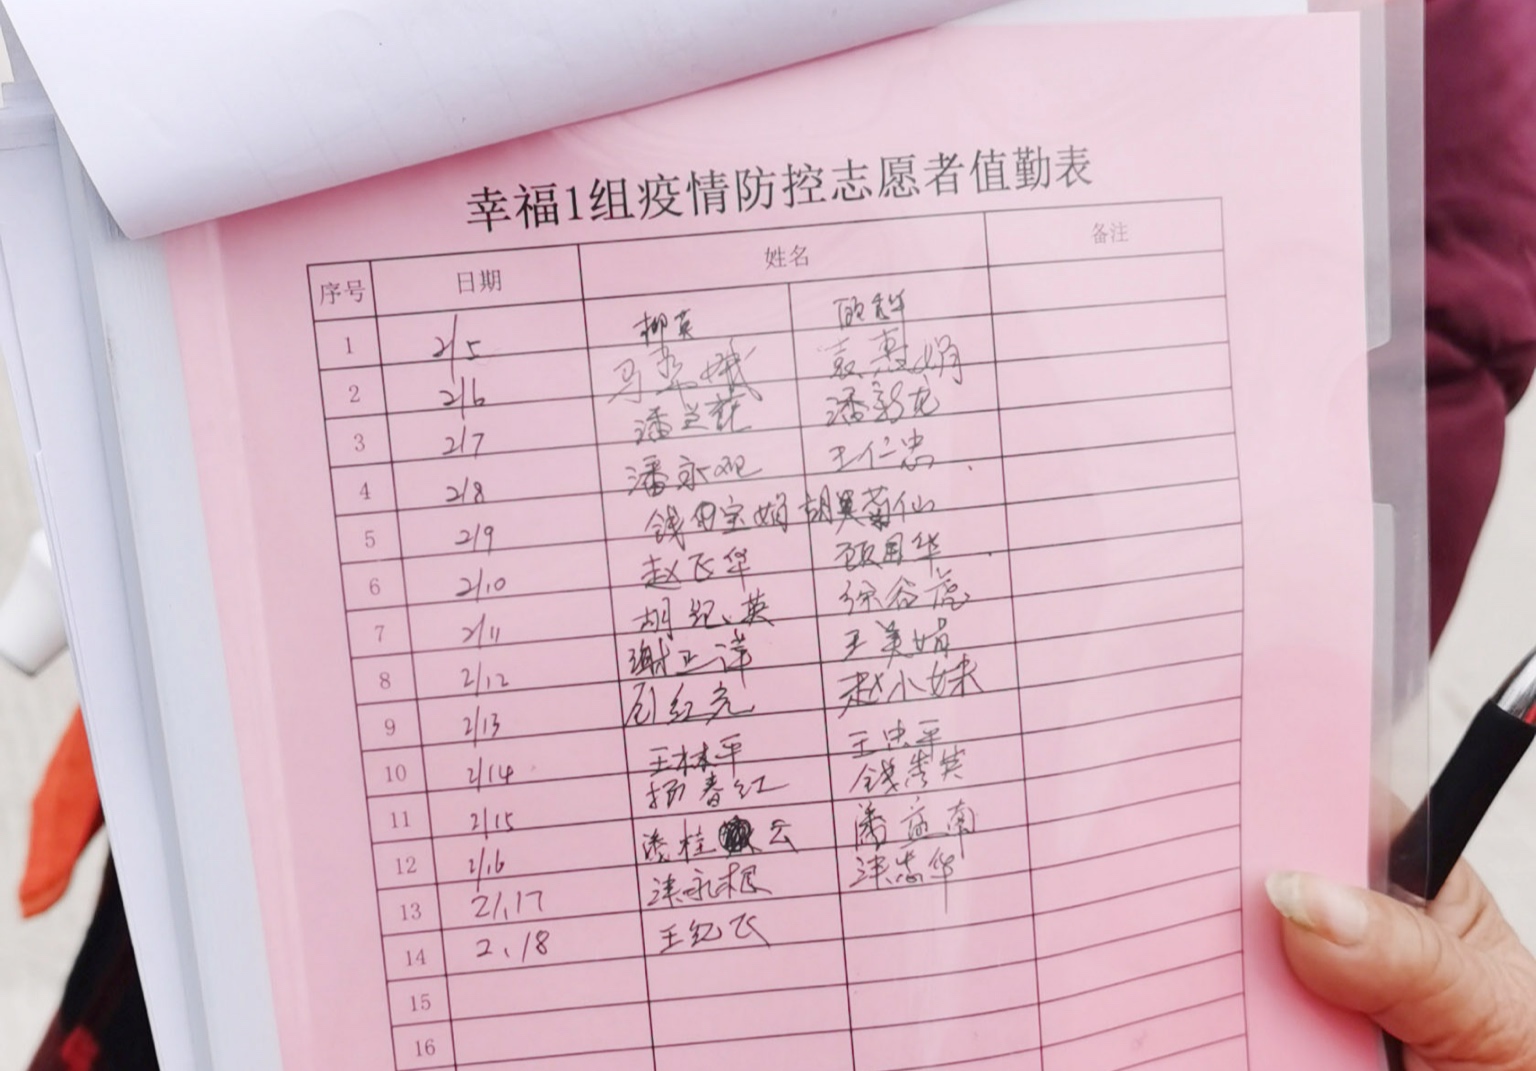 幸福1组疫情防控志愿者值勤表
序号 日期 姓名 备注
1 2/5 柳英
2 2/6 马 娥 袁惠娟
3 2/7 潘兰花 潘新龙
4 2/8 潘永观 王仁忠
5 2/9 钱宝娟 胡菊仙
6 2/10 赵飞华 顾国华
7 2/11 胡纪英 徐谷虎
8 2/12 谢正洋 王美娟
9 2/13 红亮 赵小妹
10 2/14 王林平 王忠平
11 2/15 杨春红 钱秀英
12 2/16 潘桂云 潘益南
13 2/.17 永根 华
14 2、18 王纪飞
15
16